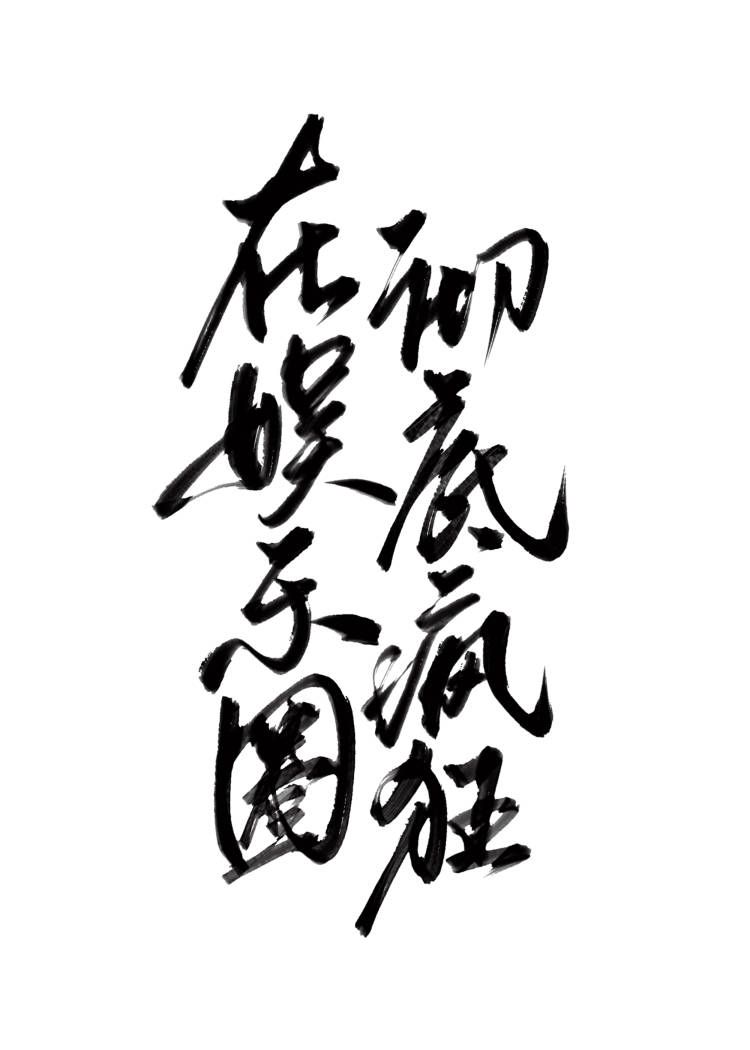 在娱乐圈
彻底疯狂